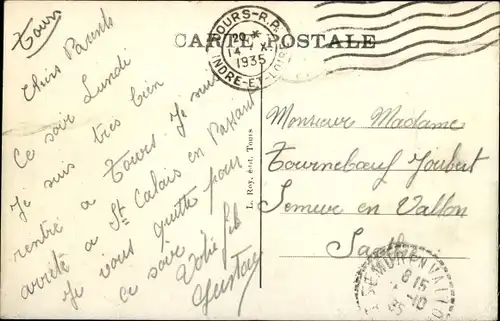 Tours
CARTE POSTALE
TOURS-R.P.
20 *
14 X
1935
INDRE-ET-LOIRE
Chers Parents
Ce soir Lundi
Je suis tres bien
rentré a Tours. Je suis
arrêté a St Calais en Passant
Je vous quitte pour
ce soir
Votre fils
Gustave
L. Roy, édit. Tours
Monsieur Madame
Tournebœuf Joubert
Semur en Vallon
Sarthe
SEMUR EN VALLON
8 15
10
35